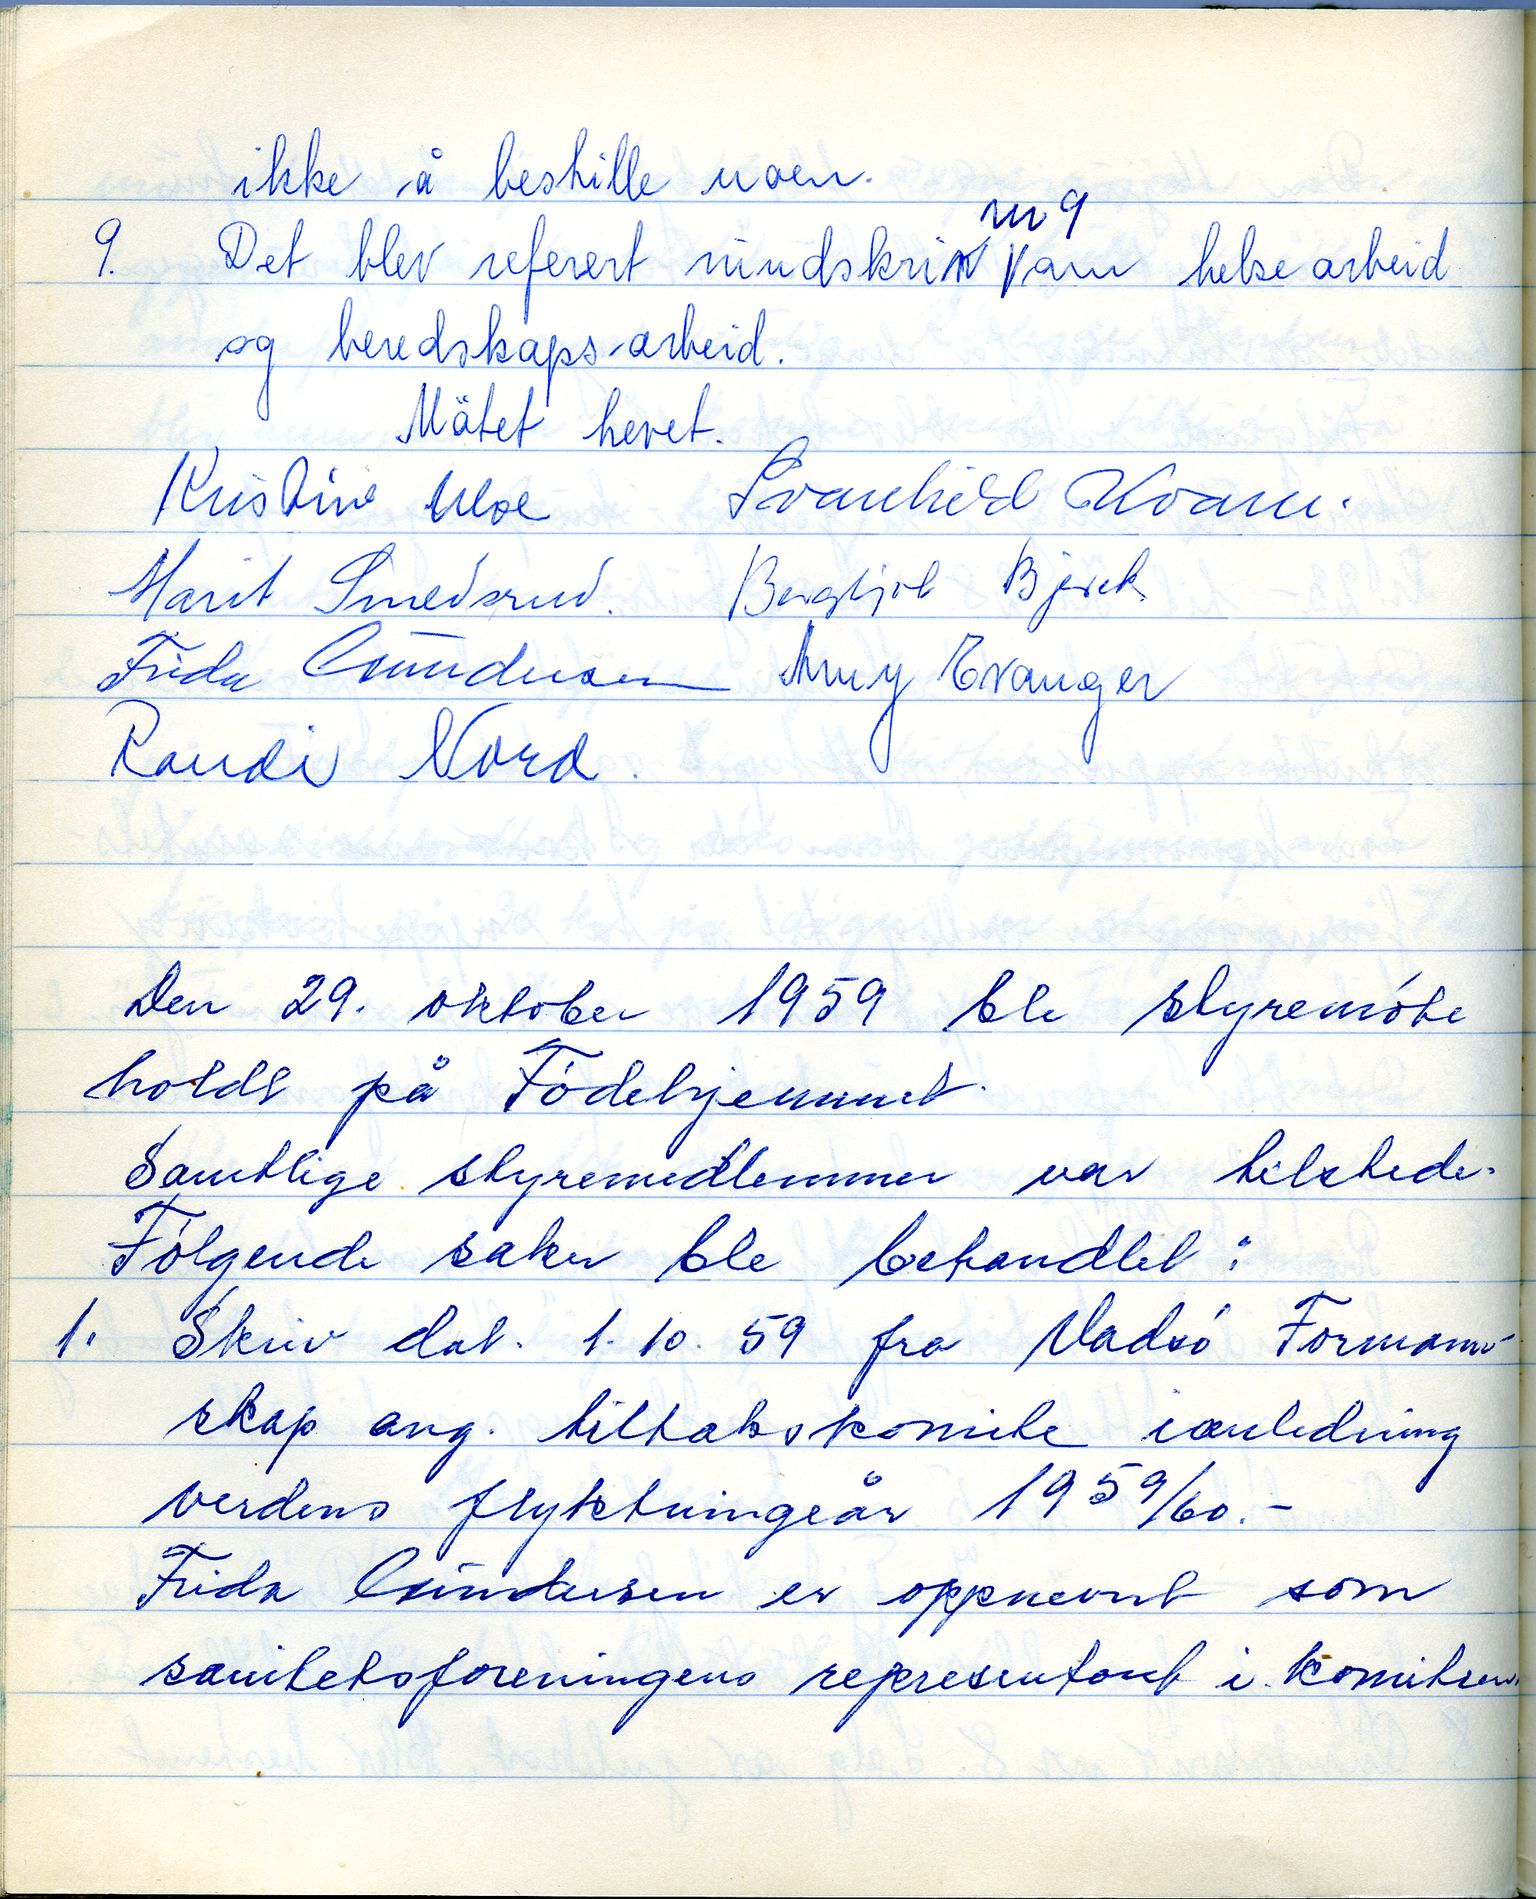 ikke å bestille noen.
nr 9
9. Det blev referert rundskriv om helsearbeid
og beredskaps-arbeid.
Mötet hevet.
Kristine Moe Svanhild Kvam.
Marit Smedsrud. Bergljot Bjørck
Frida Gundersen Amy Evanger
Randi Nord.
Den 29. oktober 1959 ble styremóte
holdt på Fódehjemmet.
Samtlige styremedlemmer var tilstede.
Fólgende saker ble behandlet:
1. Skriv dat. 1.10.59 fra Vadsó Formann-
skap ang. tiltakskomite ianledning
verdens flyktningeår 1959/60.-
Frida Gundersen er oppnevnt som
sanitetsforeningens representant i komiteen.